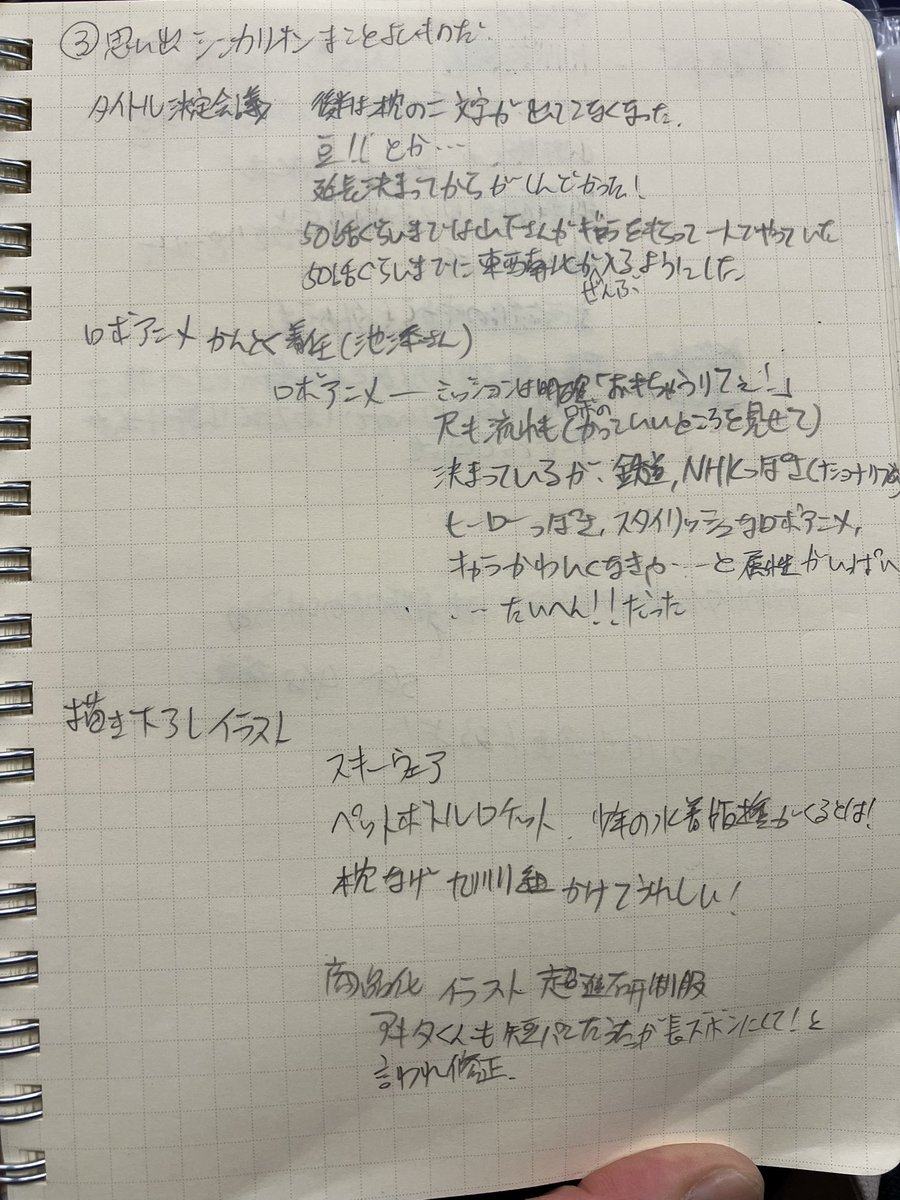 ③思い出 シンカリオン まことよしものだ
タイトル決定会議 後半は枕の二文字が出てこなくなった。
豆!!とか…
延長決まってからがしんどかった!
50話ぐらいまでは山下さんがギ をもらって一人でやっていた
50話ぐらいまでに東西南北が入るようにした
ぜんぶ
ロボアニメ かんとく着任(池添さん)
ロボアニメ ― ミッションは明確「おもちゃうりてぇ!」
尺も流れも(ロボのかっていいところを見せて)
決まっているが、鉄道,NHKっぽさ(
ヒーローっぽさ,スタイリッシュなロボアニメ,
キャラかわいくなきゃ…と属性がいっぱい
…たいへん!!だった
描き下ろしイラスト
スキーウェア
ペットボトルロケット 少年の水着版権がくるとは!
枕なげ 九州組 かけてうれしい!
商品化 イラスト 超進研制服
アキタくんも短パンだったが長ズボンにして!と
言われ修正.